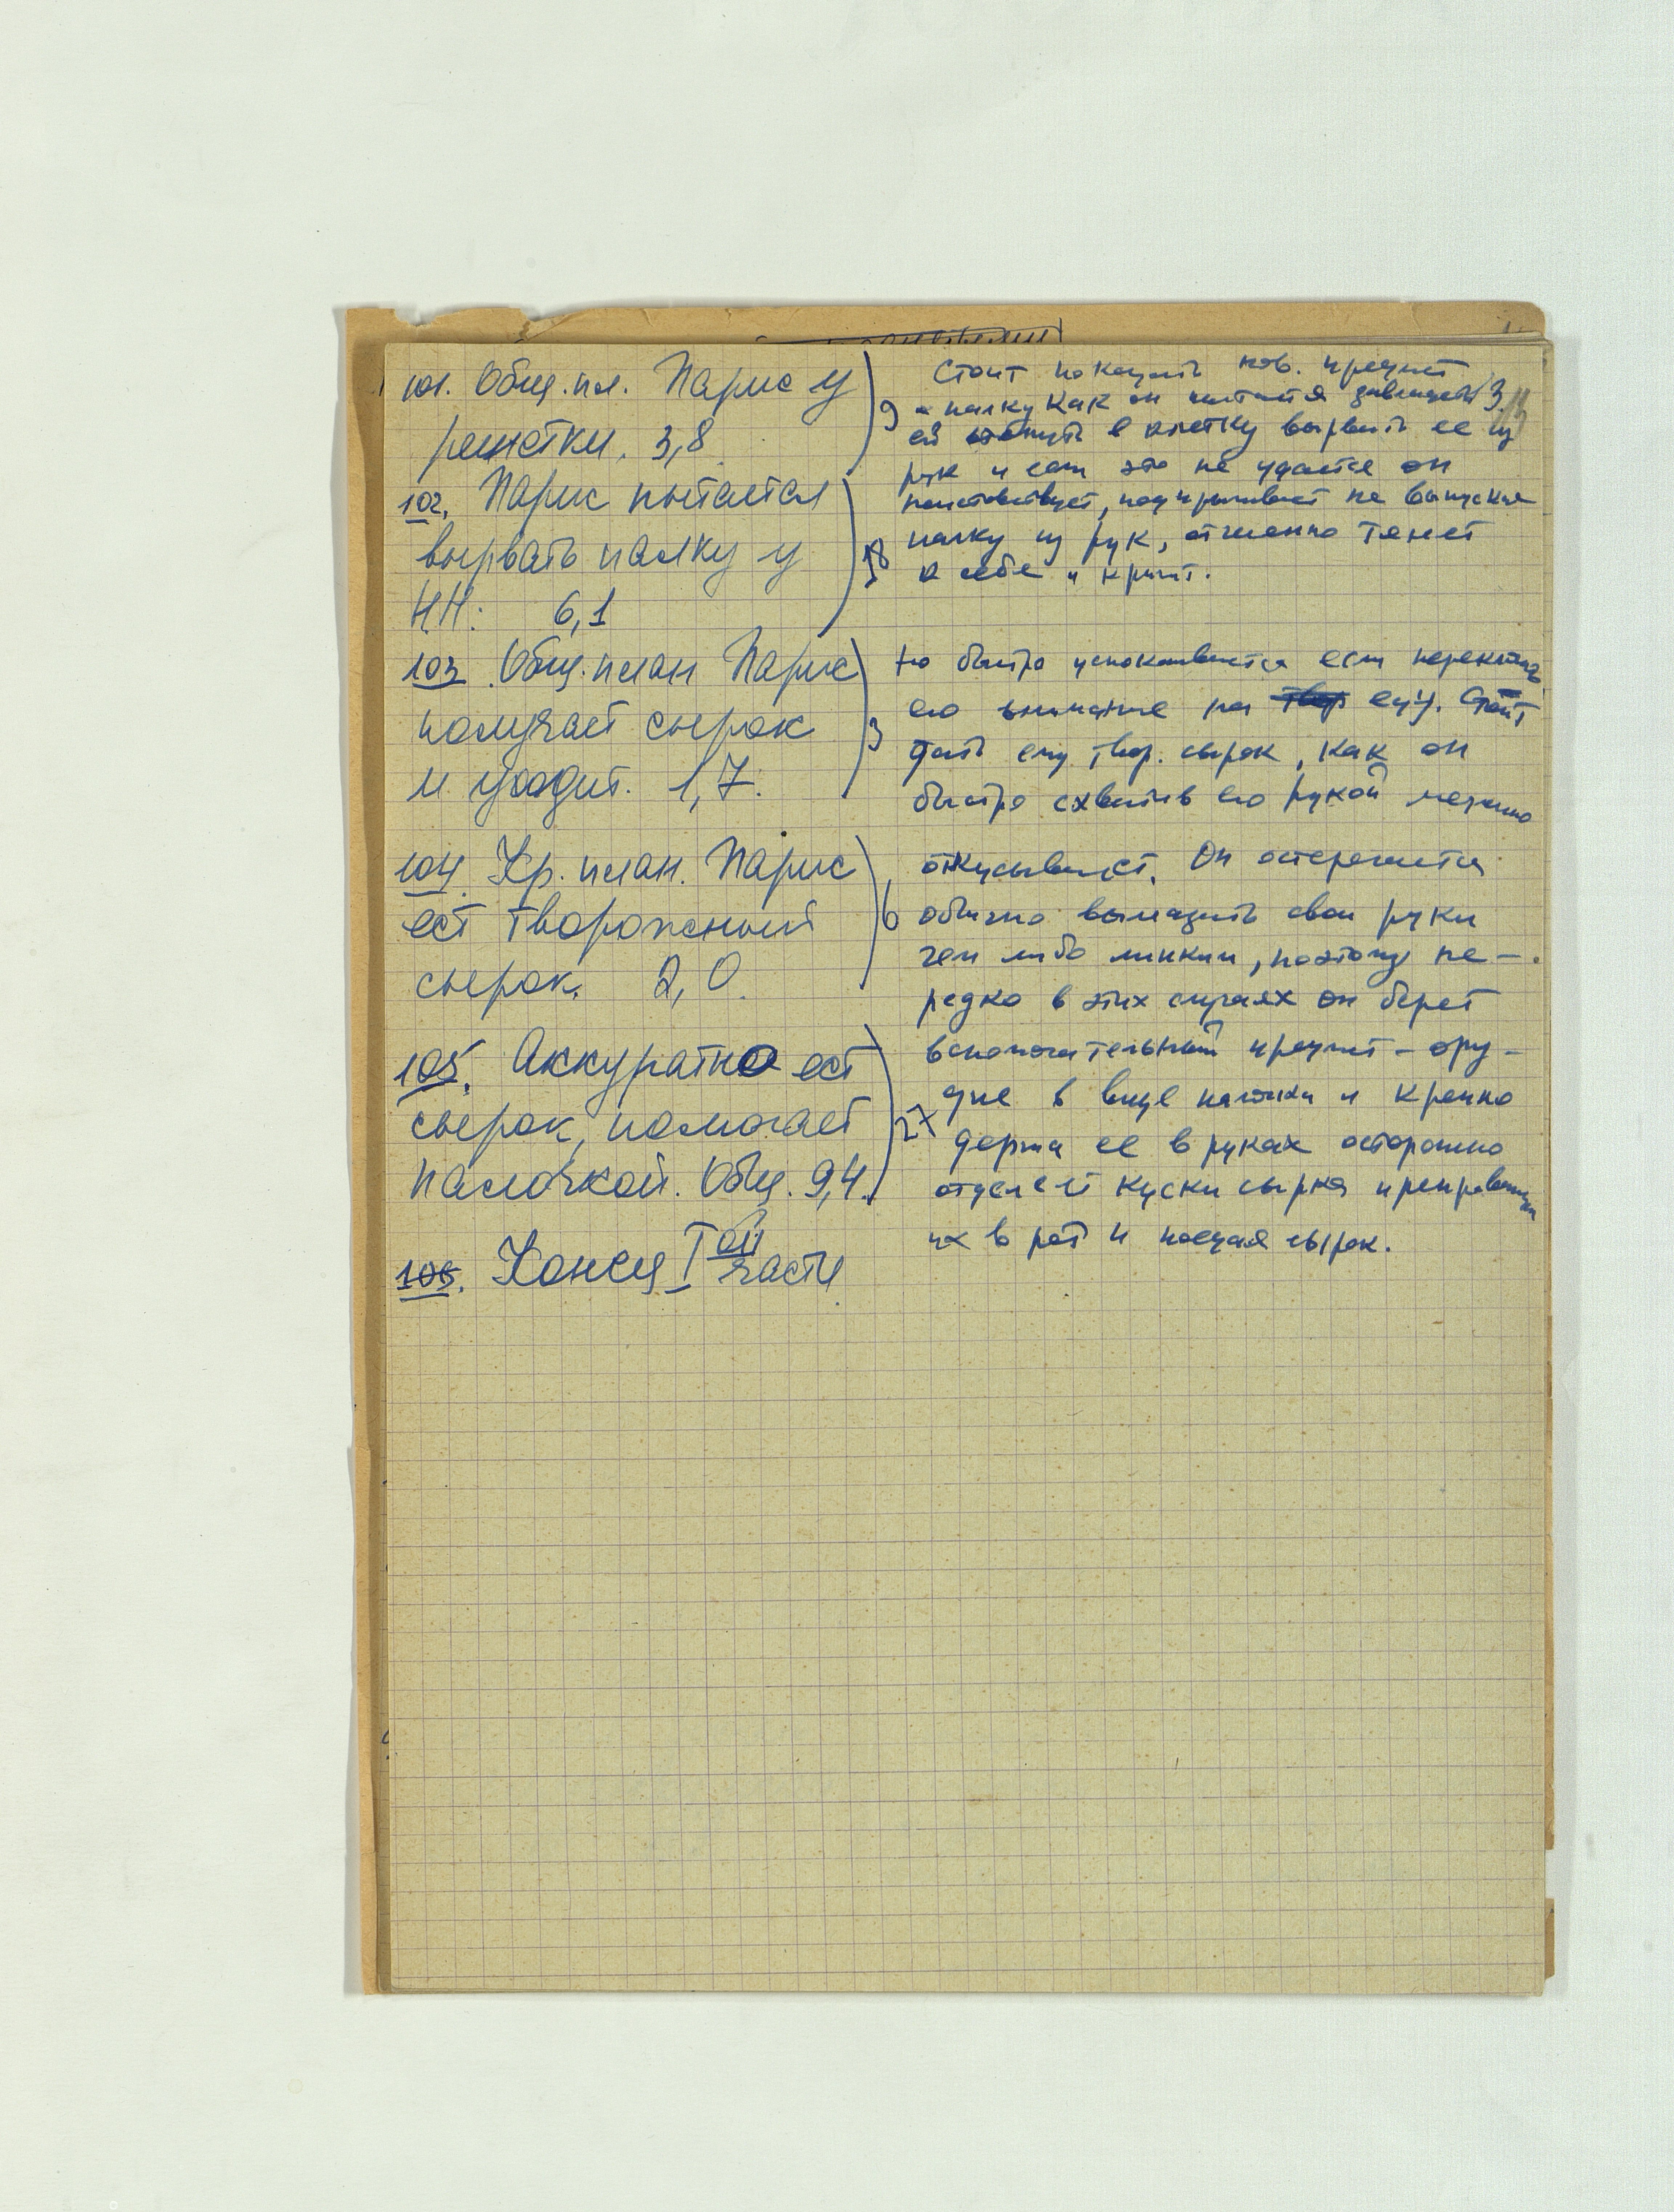 101. Общ. пл. Парис у
решетки. 3,8
102. Парис пытается
вырвать палку у
Н.Н. 6,1
103. Общ. план Парис
получает сырок
и уходит. 1,7.
104. Кр. план. Парис
ест творожный
сырок. 2,0.
105. Аккуратно ест
сырок, помогает
палочкой. Общ. 9,4.
106. Конец I ой части
9
18
3
6
27
Стоит показать нов. предмет
- палку как он пытается
ей в клетку вырвать ее из
рук и если это не удается он
неистовствует, подпрыгивает не выпуская
палку из рук, отчаянно тянет
к себе и кричит.
Но быстро успокаивается если переключить
его внимание на еду. Стоит
дать ему твор. сырок, как он
быстро схватив его рукой
откусывает. Он остерегается
обычно вымазать свои руки
чем либо липким, поэтому не-
редко в этих случаях он берет
вспомогательный предмет - ору-
дие в виде палочки и крепко
держа ее в руках осторожно
отделяет куски сырка
их в рот и поедая сырок.